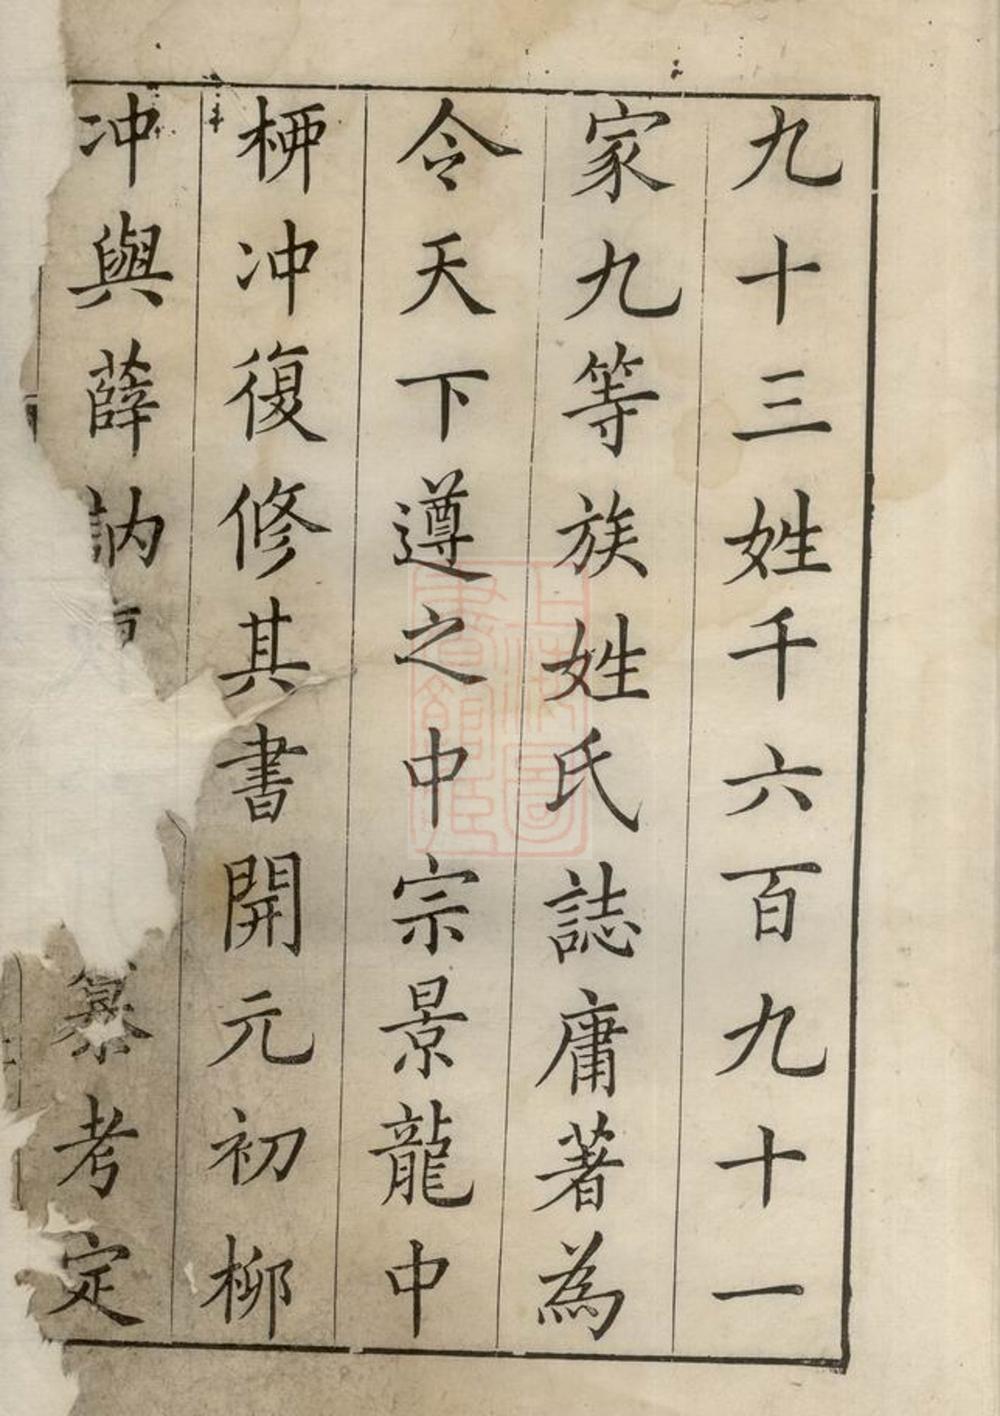 九十三姓千六百九十一
家九等族姓氏誌庸著為
令天下遵之中宗景龍中
桺冲復修其書開元初柳
冲與薛訥纂考定
上海圖
書館藏